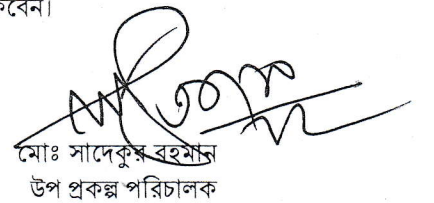 মোঃ সাদেকুর রহমান
উপ প্রকল্প পরিচালক